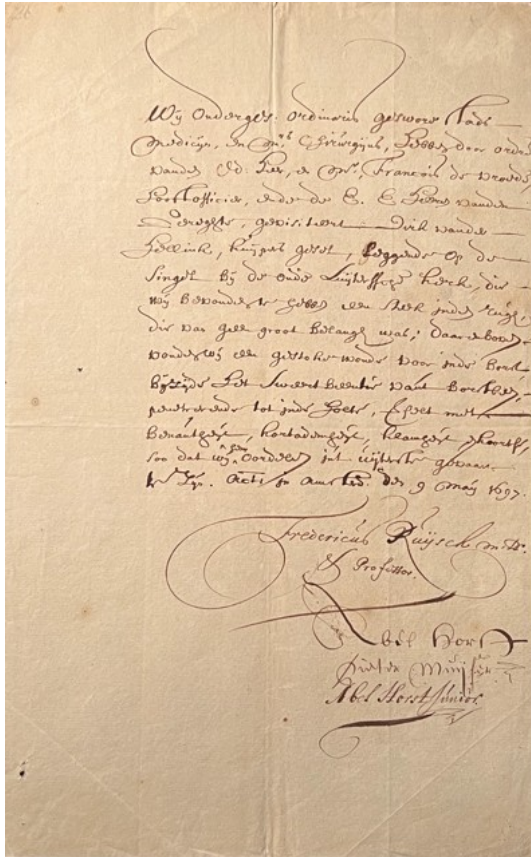 Wij Onderges. ordinaris geswore Stads
Medicijn, en Chirurgijns, hebben door ordre
vanden Ed. Heer, en Mr. Francois de Vroede
Hooftofficier, ende de E. E. Heeren vanden
Geregte, gevisiteert Dirk vander
kuijpers gesel, leggende op de
Singel bij de oude Luijterse kerk, die
wij bevonden te hebben een steek inden rugh,
die van geen groot belangh was; daar en boven
vonden wij een gestoke wonde voor inde borst,
bezijde het Sweert beentie vant borstbeen,
penetrerende tot inde holte, Effect met
Benautheijt, kortademheijt,
soo dat wij hem oordeelen int uijterste gevaar
te zijn. Actu in Amsterd. den 9 Maij 1697.
Fredericus Ruijsch M. Dr.
& Professor.
Abel Horst
Pieter Muijser
Abel Horst Junior.